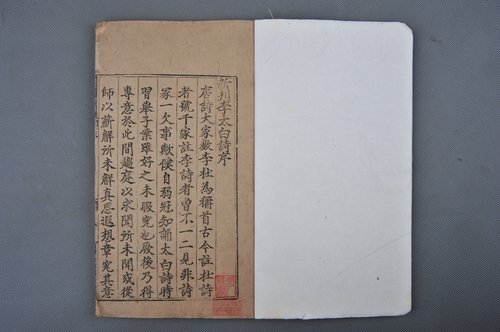 刊李太白詩序
唐詩大家數李杜為稱首古今註杜詩
者號千家註李詩者曾不一二見非詩
家一欠事歟僕自弱冠知誦太白詩時
習舉子業雖好之未暇究也厥後乃得
專意於此間趨庭以求聞所未聞或從
師以蘄解所未解真思遐想章究其意